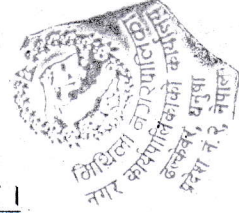 मिथिला नगरपालिका
नगर कार्यपालिकाको
ढल्केवर, धनुषा
प्रदेश नं. २, नेपाल